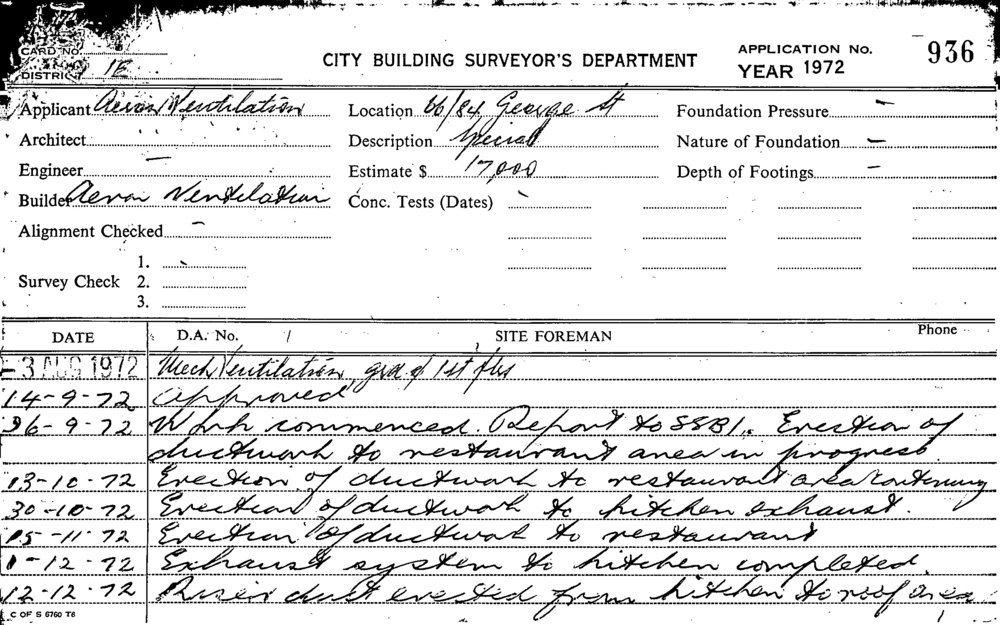 CARD No.
DISTRICT 1E
CITY BUILDING SURVEYOR'S DEPARTMENT
APPLICATION No. 936
YEAR 1972
Applicant Aeron Ventilation
Location 66/84 George St
Foundation Pressure –
Architect
Description Special
Nature of Foundation –
Engineer –
Estimate $ 17,000
Depth of Footings –
Builder Aeron Ventilation
Conc. Tests (Dates) -
Alignment Checked –
Survey Check 1. -
2.
3.
DATE D.A. No. / SITE FOREMAN Phone
-3 AUG 1972 Mech Ventilation, grd & 1st flrs
14-9-72 Approved
26-9-72 Work commenced. Report to SSBI. Erection of
ductwork to restaurant area in progress.
13-10-72 Erection of ductwork to restaurant area continuing
30-10-72 Erection of ductwork to kitchen exhaust.
15-11-72 Erection of ductwork to restaurant
1-12-72 Exhaust system to kitchen completed.
12-12-72 Riser duct erected from kitchen to roof area
C OF S 6760 T6